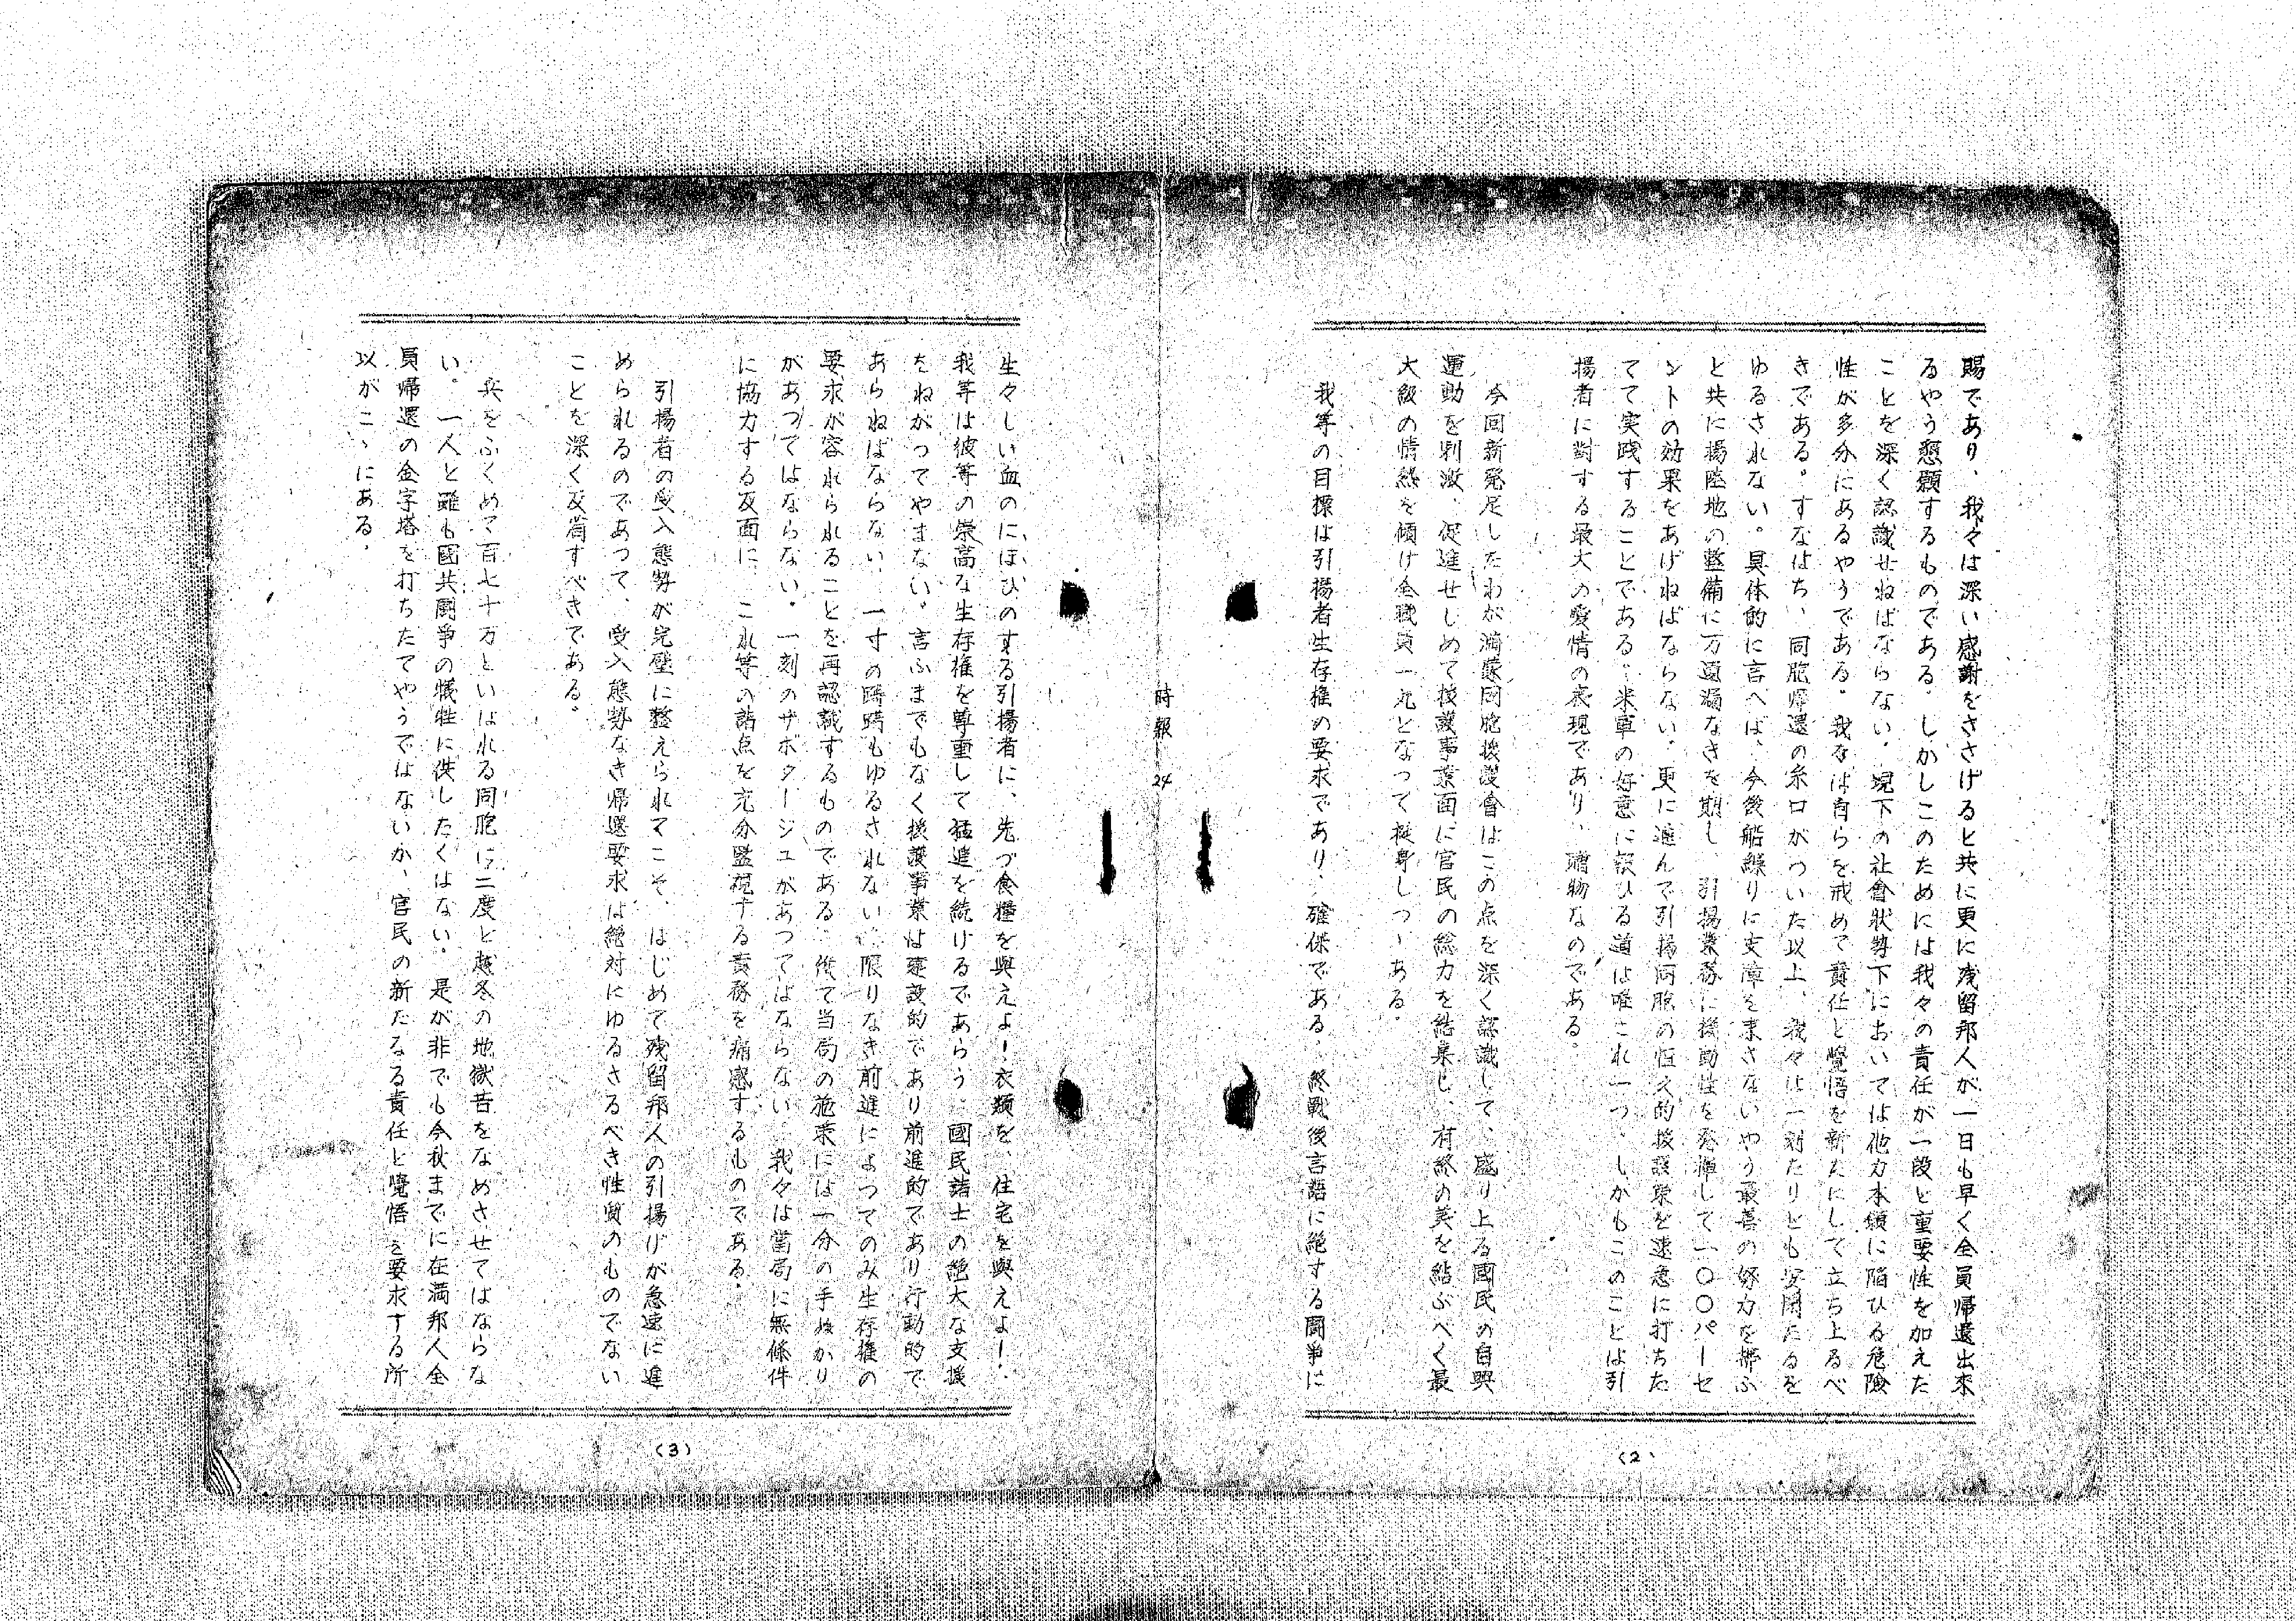 賜であり、我々は深い感謝をささげると共に更に残留邦人が一日も早く全員帰還出来
るやう懇願するものである。しかしこのためには我々の責任が一段と重要性を加えた
ことを深く認識せねばならない。現下の社會状勢下においては他力本願に陥ひる危険
性が多分にあるやうである。我々は自らを戒めて責任と覺悟を新たにして立ち上るべ
きである。すなはち、同胞帰還の糸口がついた以上、我々は一刻たりとも安閑たるを
ゆるされない。具体的に言へば、今後船繰りに支障を来さないやう最善の努力を拂ふ
と共に揚陸地の整備に万遺漏なきを期し、引揚業務に機動性を発揮して一〇〇パーセ
ントの効果をあげねばならない。更に進んで引揚同胞の恒久的援護策を速急に打ちた
てて実践することである。米軍の好意に報ひる道は唯これ一つ、しかもこのことは引
揚者に對する最大の愛情の表現であり、贈物なのである。
今回新発足したわが満蒙同胞援護會はこの点を深く認識して、盛り上る國民の自興
運動を刺激、促進せしめて援護事業面に官民の総力を結集し、有終の美を結ぶべく最
大級の情熱を傾け全職員一丸となつて挺身しつゝある。
我等の目標は引揚者生存権の要求であり、確保である。終戰後言語に絶する鬪爭に
(2)
時報 24
生々しい血のにほひのする引揚者に、先づ食糧を與えよ！衣類を、住宅を與えよ！
我等は彼等の崇高な生存権を尊重して猛進を続けるであらう。國民諸士の絶大な支援
をねがつてやまない。言ふまでもなく援護事業は建設的であり前進的であり行動的で
あらねばならない、一寸の躊躇もゆるされない。限りなき前進によつてのみ生存権の
要求が容れられることを再認識するものである。従て当局の施策には一分の手ぬかり
があつてはならない。一刻のサボタージュがあつてはならない。我々は當局に無條件
に協力する反面に、これ等の諸点を充分監視する責務を痛感するものである。
引揚者の受入態勢が完壁に整えられてこそ、はじめて残留邦人の引揚げが急速に進
められるのであつて、受入態勢なき帰還要求は絶対にゆるさるべき性質のものでない
ことを深く反省すべきである。
兵をふくめて百七十万といはれる同胞に二度と越冬の地獄苦をなめさせてはならな
い。一人と雖も國共鬪争の犠牲に供したくはない。是が非でも今秋までに在満邦人全
員帰還の金字塔を打ちたてやうではないか、官民の新たなる責任と覺悟を要求する所
以がこゝにある。
(3)